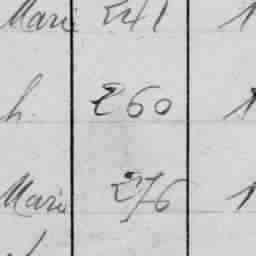 Mari 241 1
h. 260 1
Mari 276 1